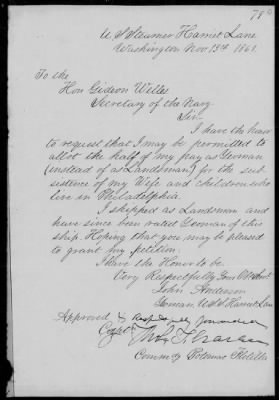 U S Steamer Harriet Lane
Washington Nov 13th 1861.
To the
Hon Gideon Welles
Secretary of the Navy
Sir
I have the honor
to request that I may be permitted to
allot the half of my pay as Yeoman
(instead of as Landsman) for the sub-
sistence of my Wife and children who
live in Philadelphia.
I shipped as Landsman and
have since been rated Yeoman of this
ship. Hoping that you may be pleased
to grant my petition.
I have the Honor to be
Very Respectfully Your Obt Servt
John Anderson
Yeoman U.S.S. Harriet Lane
Approved & Respectfully forwarded
Comm'g Potomac Flotilla